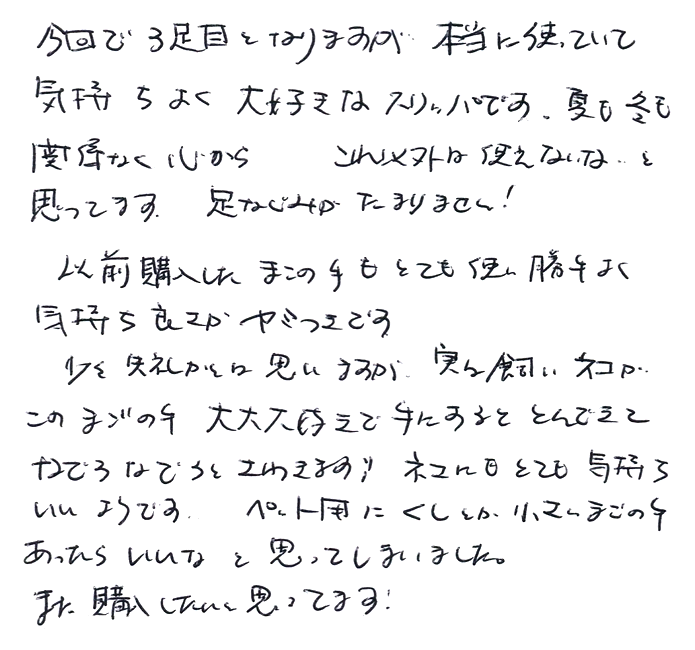 今回で3足目となりますが 本当に使っていて
気持ちよく 大好きなスリッパです。夏も冬も
関係なく 心から これ以外は使えないな…と
思ってます。 足なじみが たまりません!
以前購入した まごの手も とても使い勝手よく
気持ち良さが ヤミつきです
少々失礼かとは思いますが、実は飼いネコが…
このまごの手 大大大好きで 手にすると とんできて
なでろなでろとさわぎます!! ネコにもとても気持ち
いいようです。 ペット用に くしとか 小さいまごの手
あったらいいなと思ってしまいました。
また購入したいと思ってます!